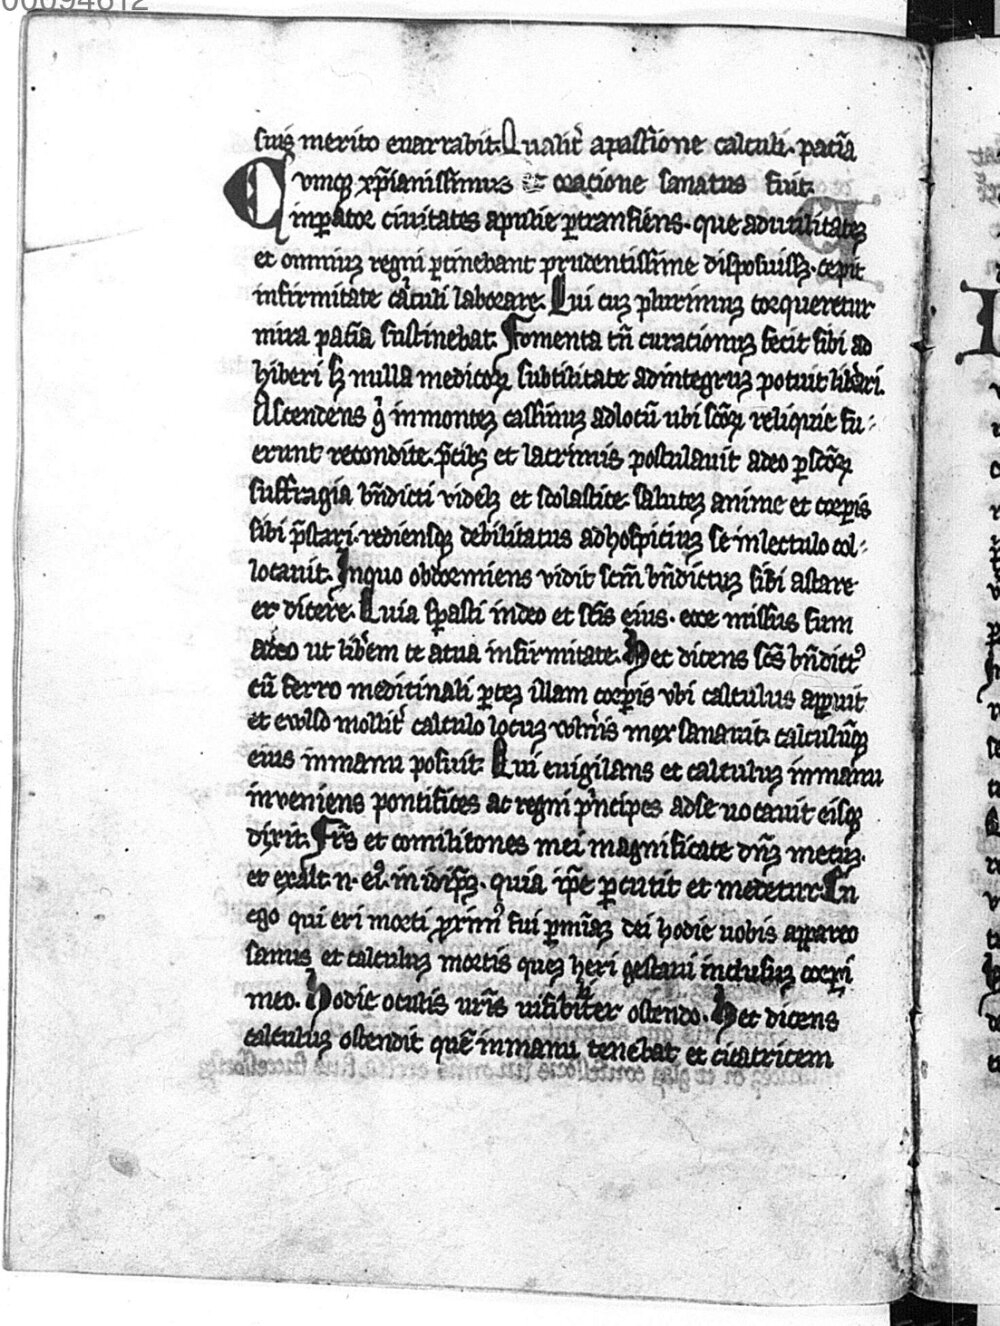 00094612
suis merito enarrabit. Qualit̕ apassione calculi. pacia
Cumq; xp̄ianissimus oracione sanatus fuit.
inp̄ator ciuitates apulie p̱transiens. que adutilitatez
et omniuz regni p̱tinebant prudentissime disposuissz. cepit
infirmitate calculi laborare. Qui cuz plurimuz torqueretur
mira paciā sustinebat. Fomenta tn̄ curacionuz fecit sibi ad
hiberi sz nulla medicoꝝ subtilitate adintegruz potuit lib̄ari.
Ascendens g̊ inmontez cassinuz adlocū ubi scōꝝ reliquie fu-
erunt recondite. p̄cibz et lacrimis postulauit adeo p̱ scōꝝ
suffragia bn̄dicti videlz et scolastice salutez anime et corp̱is
sibi p̄stari. rediensqz debilitatus adhospiciuz se inlectulo col-
locauit. Inquo obdormiens vidit scm̄ bn̄dictuz sibi astare
et dicere. Quia sp̱asti indeo et scīs eius. ecce missus sum
adeo ut lib̄em te atua infirmitate. Hec dicens scs̄ bn̄dictꝰ
cū ferro medicinali p̱tez illam corp̱is vbi calculus ap̱uit
et euulso mollit̕ calculo locuz vuln̄is mox sanauit. calculūqz
eius inmanu posuit. Qui euigilans et calculuz inmanu
inveniens pontifices ac regni p̄ncipes adse uocauit eisqz
dixit. Frs̄ et comilitones mei magnificate dn̄z mecuz.
et exalt. n. eiꝰ. in idip̄z. quia ip̄e p̱cutit et medetur. En
ego qui eri morti p̱ximꝰ fui p̱ mīaz dei hodie uobis appareo
sanus et calculuz mortis quez heri gestaui inclusuz corp̱i
meo. Hodie oculis vrīs uisibiliter ostendo. Hec dicens
calculuz ostendit quē inmanu tenebat et cicatricem